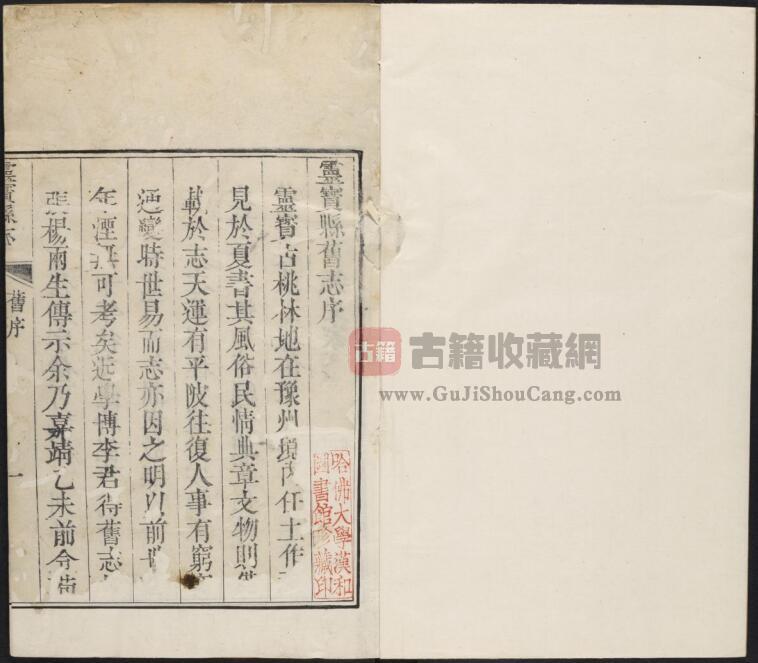 靈寶縣舊志序
靈寶古桃林地在豫州 任土作
見於夏書其風俗民情典章文物則
載於志天運有平陂往復人事有窮
通變時世易而志亦因之明以前
年湮 可考矣近學博李君待舊志
楊兩生傳示余乃嘉靖乙未前令
靈寶縣志
舊序
一
哈佛大學漢和
圖書館珍藏印
古籍
古籍收藏網
www.GuJiShouCang.com